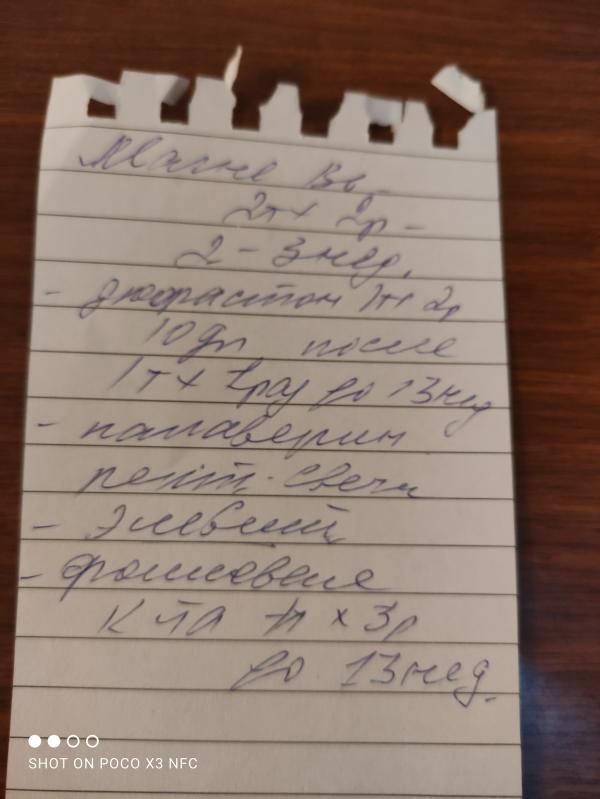 Магне В6
2т х 2р -
2 - 3 нед.
- дюфастон 1т х 2р
10 дн после
1т х 1 раз до 13 нед
- папаверин
рект. свечи
- Элевит
- фолиевая
к та 1т х 3р
до 13 нед.
SHOT ON POCO X3 NFC